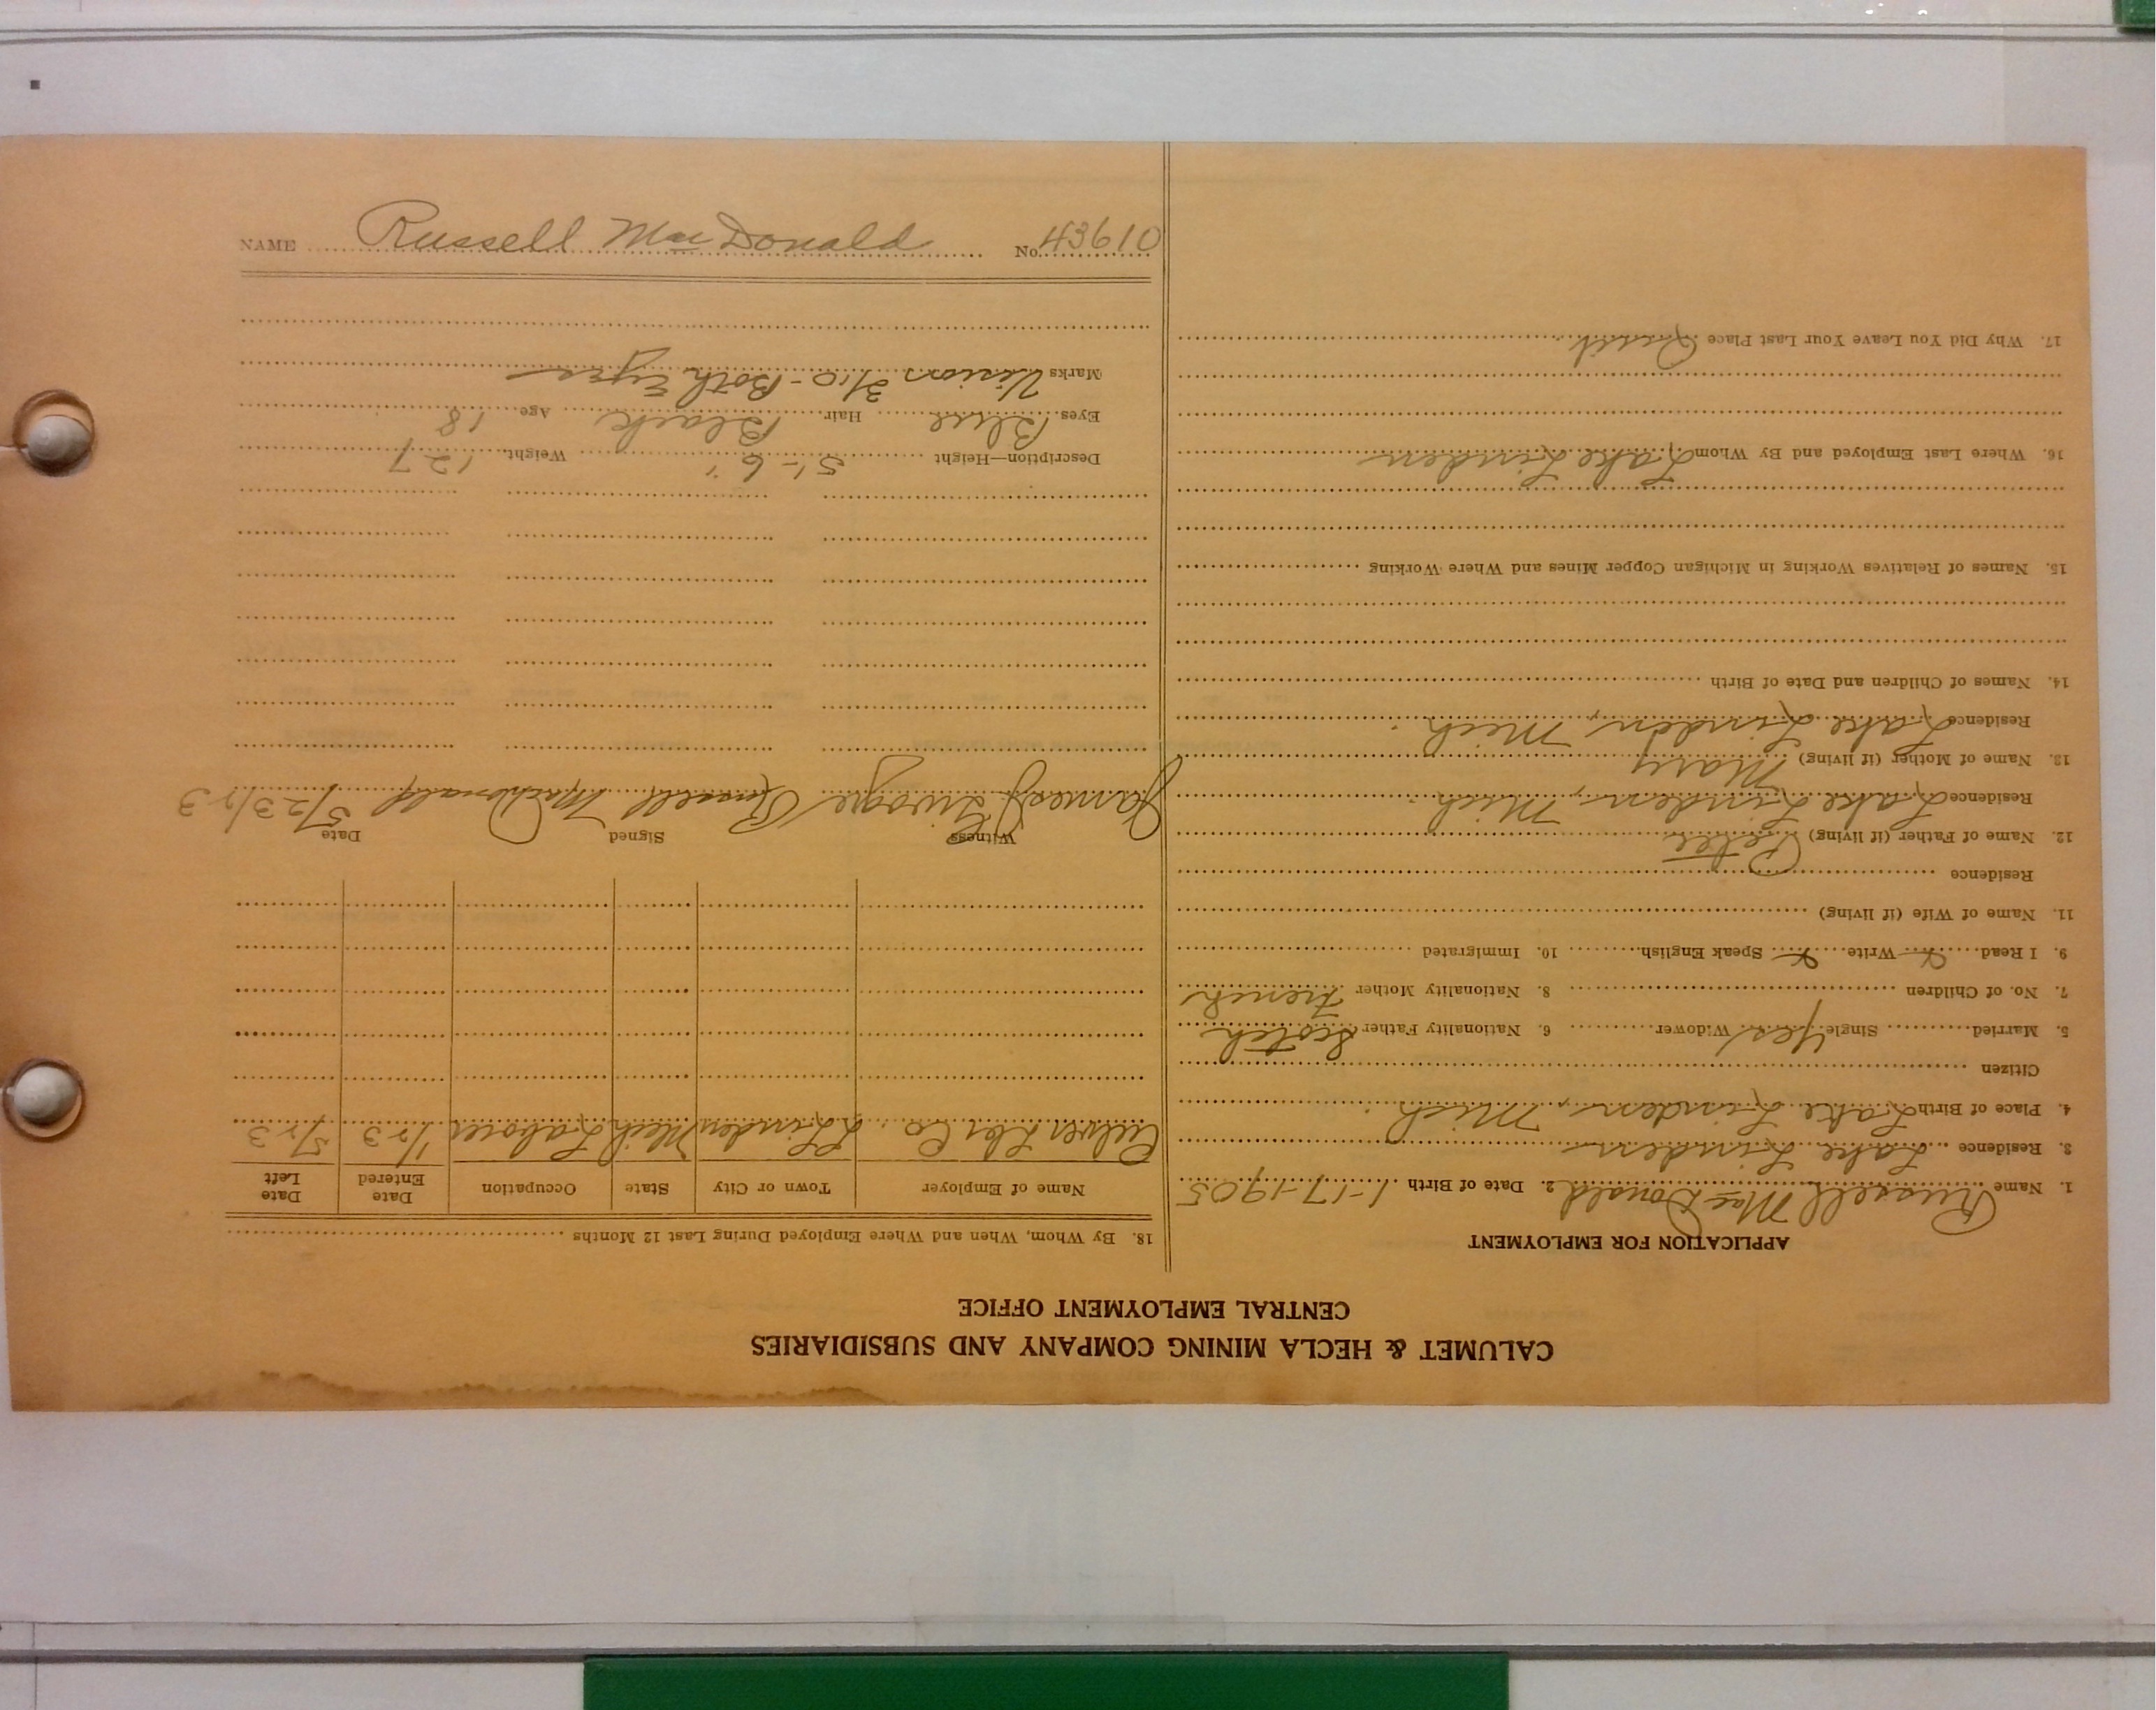 CALUMET & HECLA MINING COMPANY AND SUBSIDIARIES
CENTRAL EMPLOYMENT OFFICE
APPLICATION FOR EMPLOYMENT
1. Name Russell MacDonald 2. Date of Birth 1-17-1905
3. Residence Lake Linden
4. Place of Birth Lake Linden, Mich.
Citizen
5. Married Single Yes Widower 6. Nationality Father Scotch
7. No. of Children 8. Nationality Mother French
9. I Read Write Speak English 10. Immigrated
11. Name of Wife (if living)
Residence
12. Name of Father (if living) Peter
Residence Lake Linden, Mich.
13. Name of Mother (if living) Mary
Residence Lake Linden, Mich.
14. Names of Children and Date of Birth
15. Names of Relatives Working in Michigan Copper Mines and Where Working
16. Where Last Employed and By Whom Lake Linden
17. Why Did You Leave Your Last Place
18. By Whom, When and Where Employed During Last 12 Months
Name of Employer Town or City State Occupation Date Entered Date Left
Lbr Co L Linden Mich Laborer 1/23 5/23
Witness Signed Date
James Russell MacDonald 5/23/23
Description—Height 5'-6" Weight 127
Eyes Blue Hair Black Age 18
Marks Vision 3/10 - Both Eyes
NAME Russell MacDonald No. 43610